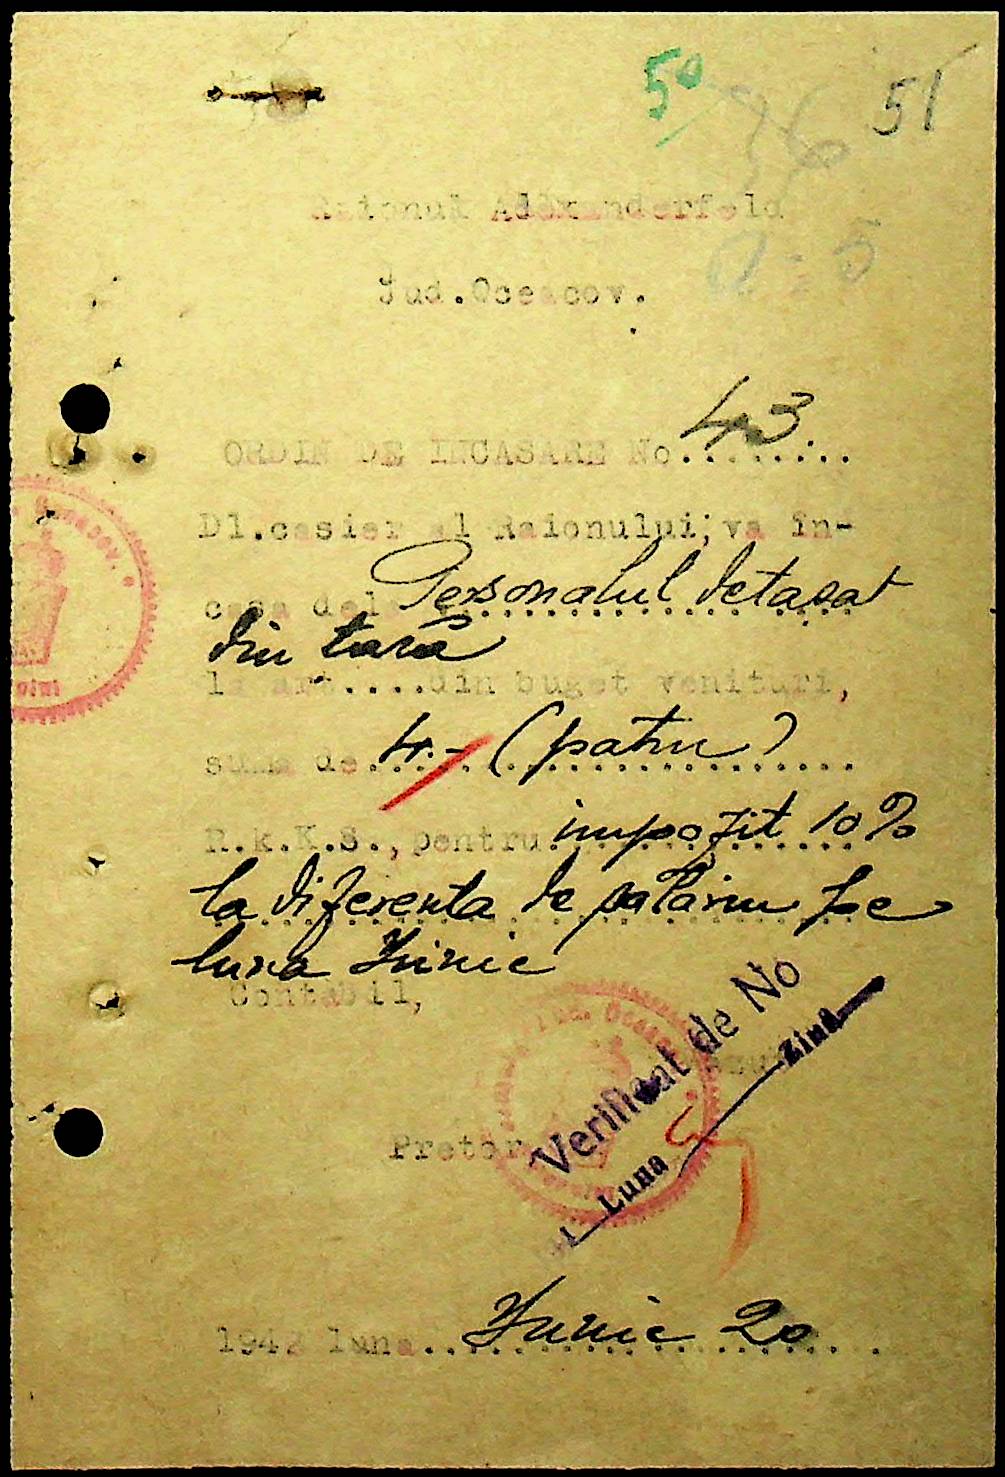 50
36
51
Raionul Alexanderfeld
Π - 5
Jud.Oceacov.
ORDIN DE INCASARE No. 43.
Dl.casier al Raionului;va in-
casa del Personalul detasat
din tară
la art....din buget venituri,
suma de 4.- (patru)
R.k.K.S.,pentru impozit 10%
la diferenta de salariu pe
luna Junie
Contabil,
Verificat de No
Luna Ziua
Pretor
1942 luna Junie 20